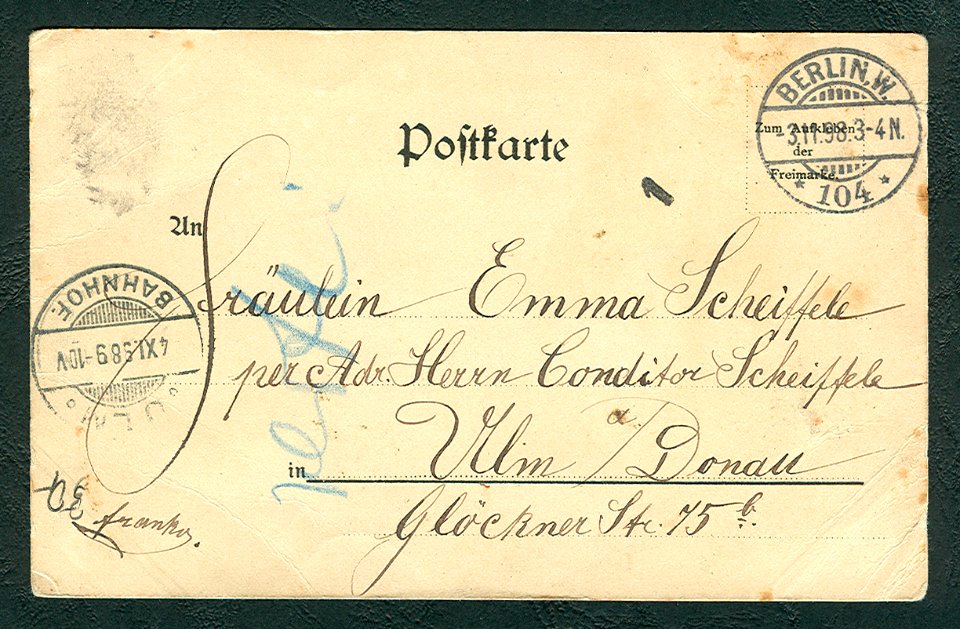 Postkarte
BERLIN, W.
-3.11.98.3-4N.
* 104 *
Zum Aufkleben
der
Freimarke.
1
An
Fräulein Emma Scheiffele
per Adr. Herrn Conditor Scheiffele
in Ulm a/Donau
Glöckner Str. 75 b
BAHNHOF.
4 XI.98 9-10V
ULM
30
franko.